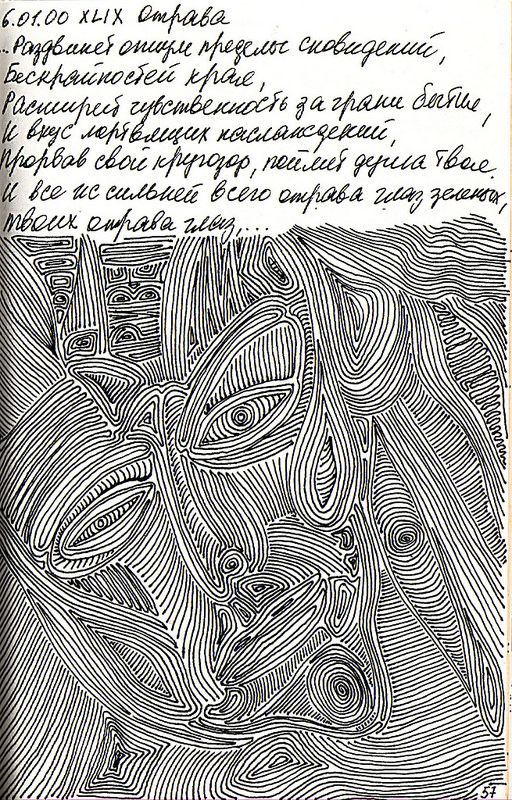 6.01.00 XLIX отрава
...Раздвинет опиум пределы сновидений,
Бескрайностей края,
Расширит чувственность за грани бытия,
И вкус мертвящих наслаждений,
Прорвав свой кругозор, поймет душа твоя.
И все ж сильней всего отрава глаз зеленых,
твоих отрава глаз,...
57